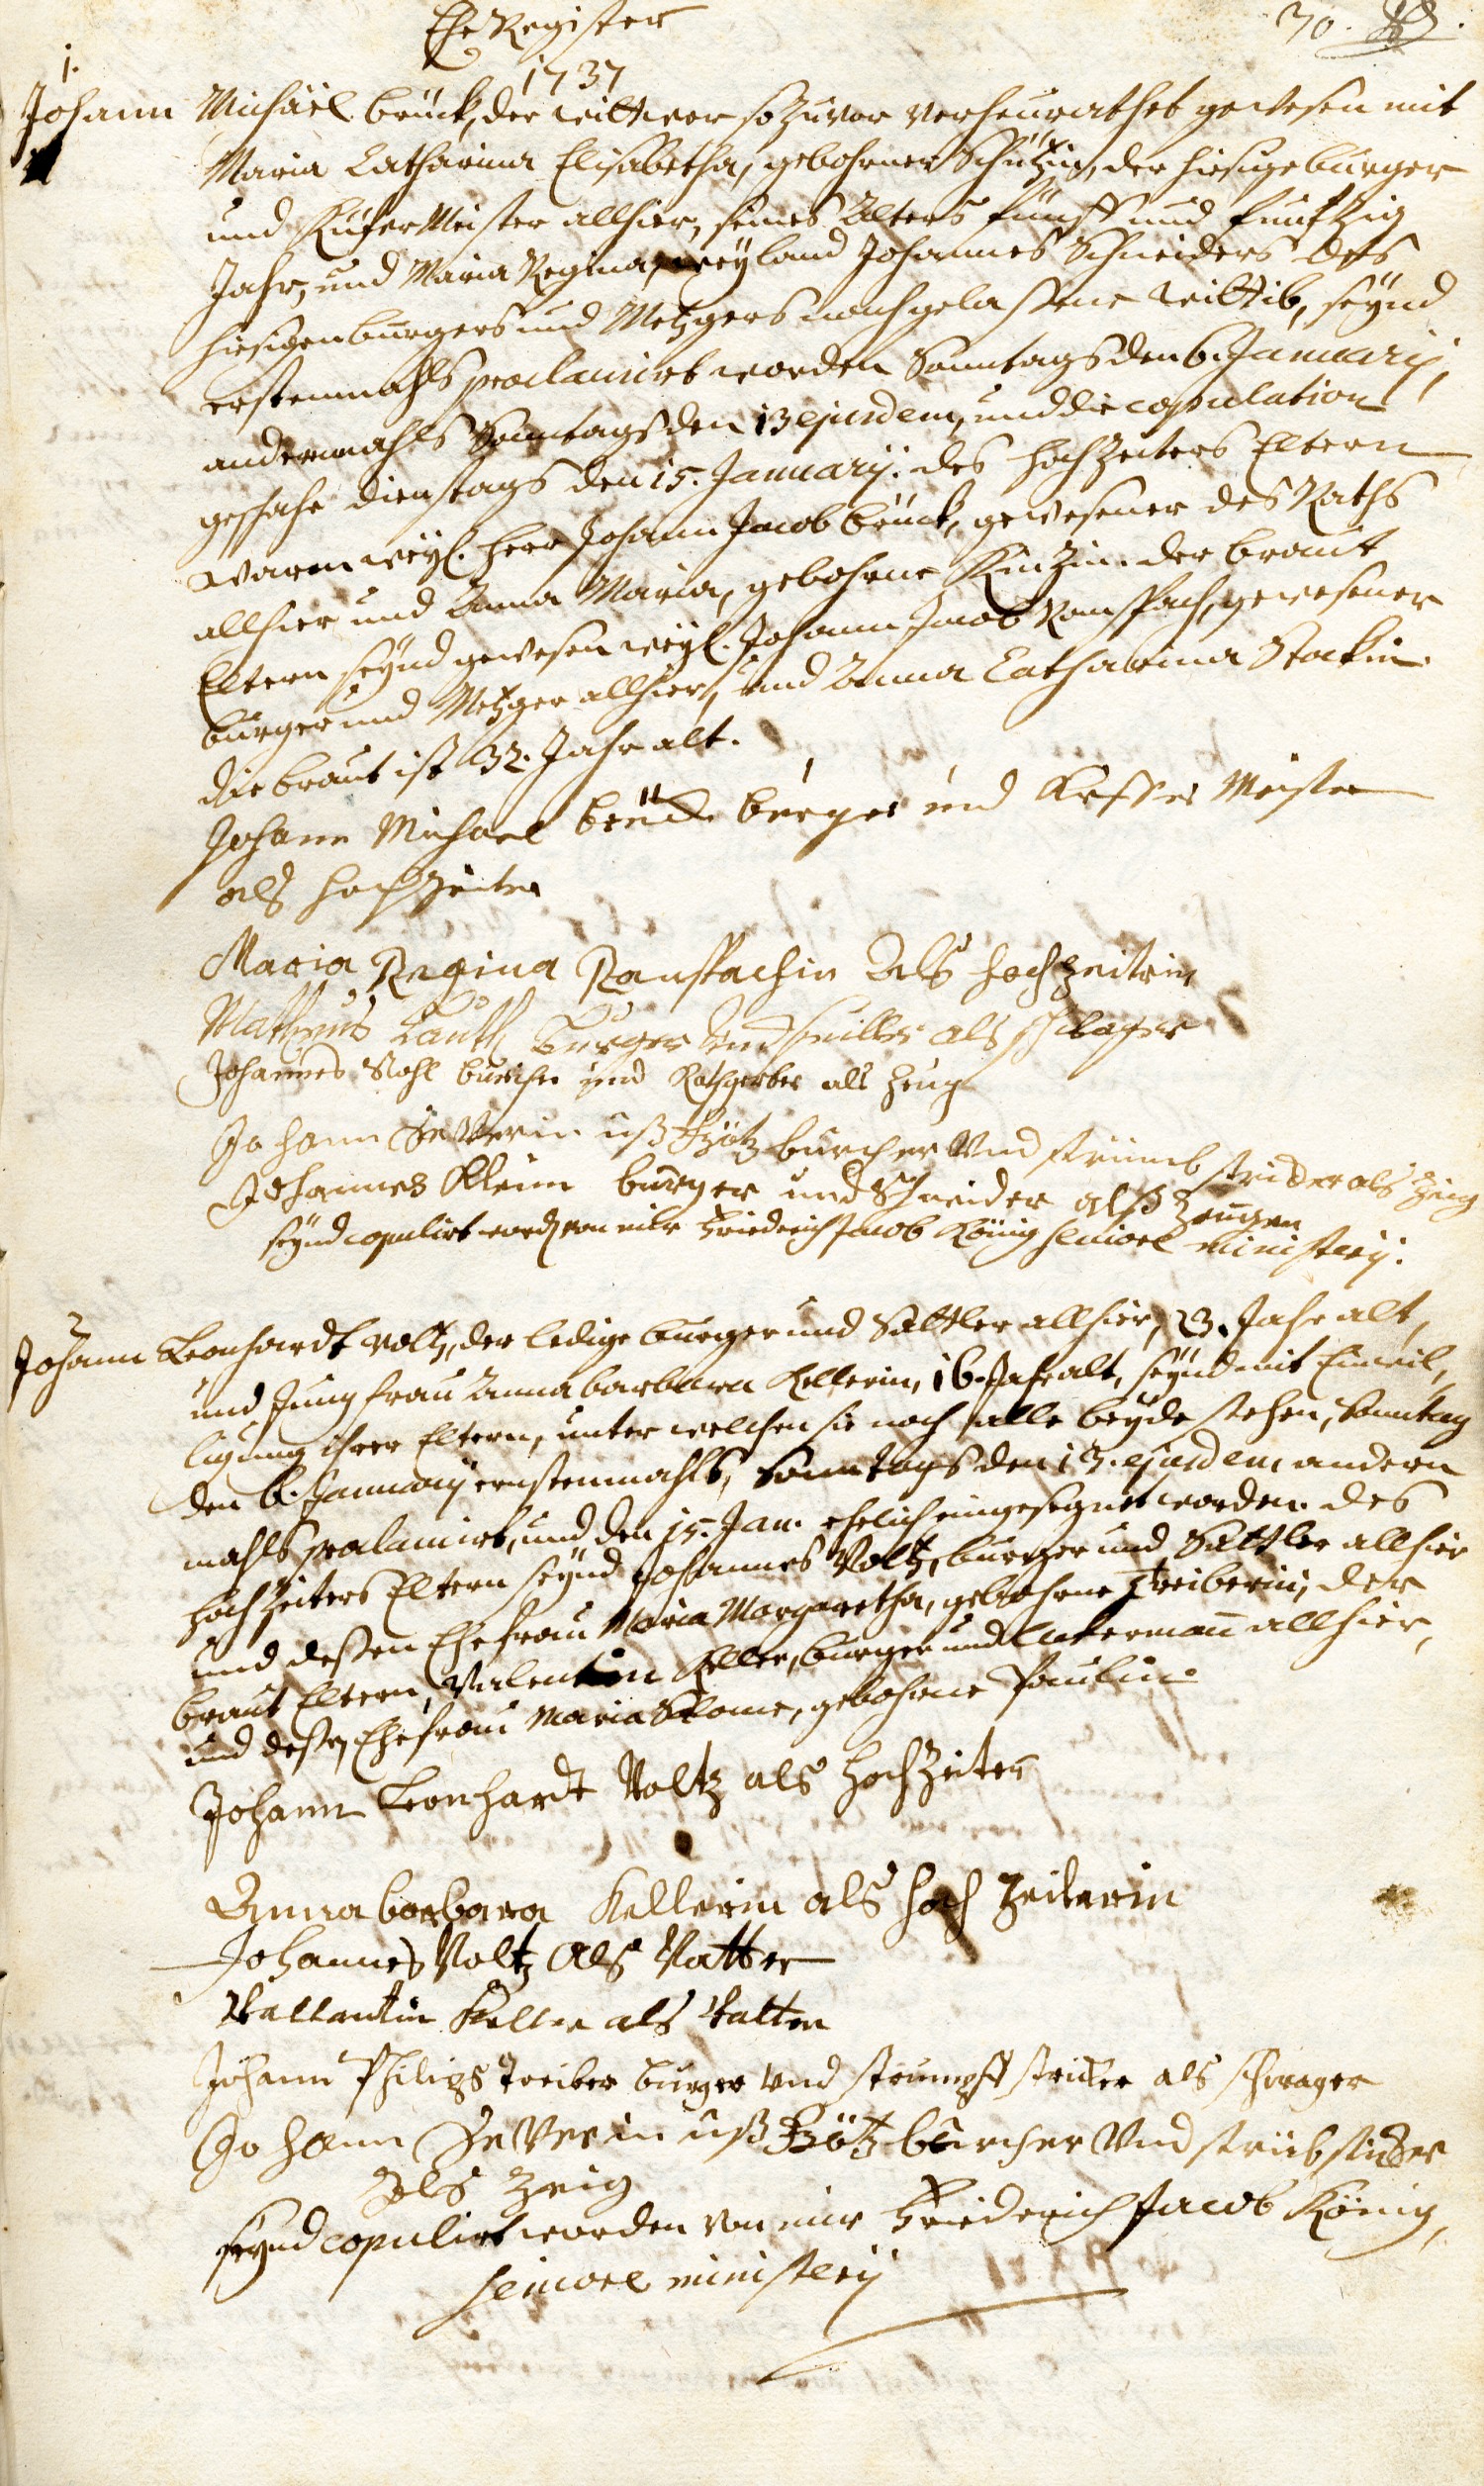 Ehe Register
30.
1737
1.
Johann Michaël Brück, der wittwer so zuvor verheurathet gewesen mit
Maria Catharina Elisabetha, gebohrner Schützin, der hiesige burger
und Küfer Meister allhier, seines Alters fünff und funftzig
Jahr, und Maria Regina, weyland Johannes Schneiders des
hiesigen burgers und Metzgers nachgelaßene wittib, seynd
erstenmahls proclamirt worden Sonntags den 6. Januarij,
andernmahls Sonntags den 13 ejusdem, und die copulation
geschahe dienstags den 15. Januarij. des hochzeiters Eltern
waren weyl. herr Johann Jacob Brück, gewesener des Raths
allhier und Anna Maria, gebohrne Kintzin. der braut
Eltern seynd gewesen weyl. Johann Jacob Ranspach, gewesener
burger und Metzger allhier, und Anna Catharina Stockin.
die braut ist 32. Jahr alt.
Johann Michael Brück burger und Kieffer Meister
als hochzeiter
Maria Regina Ranspachin Als hochzeiterin
Mattheus Lauth burger und als schwager
Johannes Stohl burcher und Rothgerber als Zeug
Johann Severin uß Frötz burcher Und strümb stricker als Zeug
Johannes Klein burger und Schneider alß Zeugen
seynd copulirt word von mir Friederich Jacob König seniore ministerij.
2
Johann Leonhardt Voltz, der ledige burger und Sattler allhier, 23. Jahr alt,
und Jungfrau Anna barbara Kellerin, 16. Jahr alt, seynd mit Einwil,
ligung ihrer Eltern, unter welchen sie noch alle beyde stehen, Sonntag
den 6. Januarij erstenmahls, Sonntags den 13. ejusdem andern
mahls proclamirt, und den 15. Jan. ehelich eingesegnet worden. des
hochzeiters Eltern seynd Johannes Voltz, burger und Sattler allhier
und deßen Ehefrau Maria Margaretha, gebohrne Treiberin, der
braut Eltern, Valentin Keller, burger und Ackermañ allhier,
und deßen Ehefrau Maria Salome, gebohrne Paulin.
Johann Leonhardt Voltz als hochzeiter
Anna barbara Kellerin als hoch zeiterin
Johannes Voltz Als Vatter
Vallentin Keller als Vatter
Johann Philips Treiber burger und strumpff stricker als schwager
Johann Severin uß Frötz burcher Und strüb stricker
Als Zeig
seynd copulirt worden von mir Friederich Jacob König,
seniore ministerij